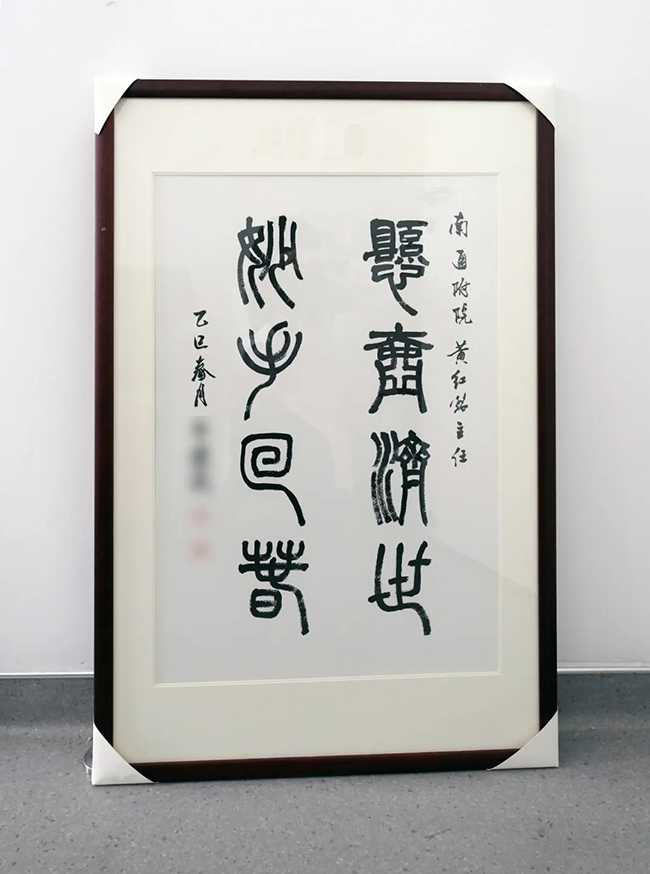 南通附院 黄红铭主任
懸壺濟世
妙手回春
乙巳春月